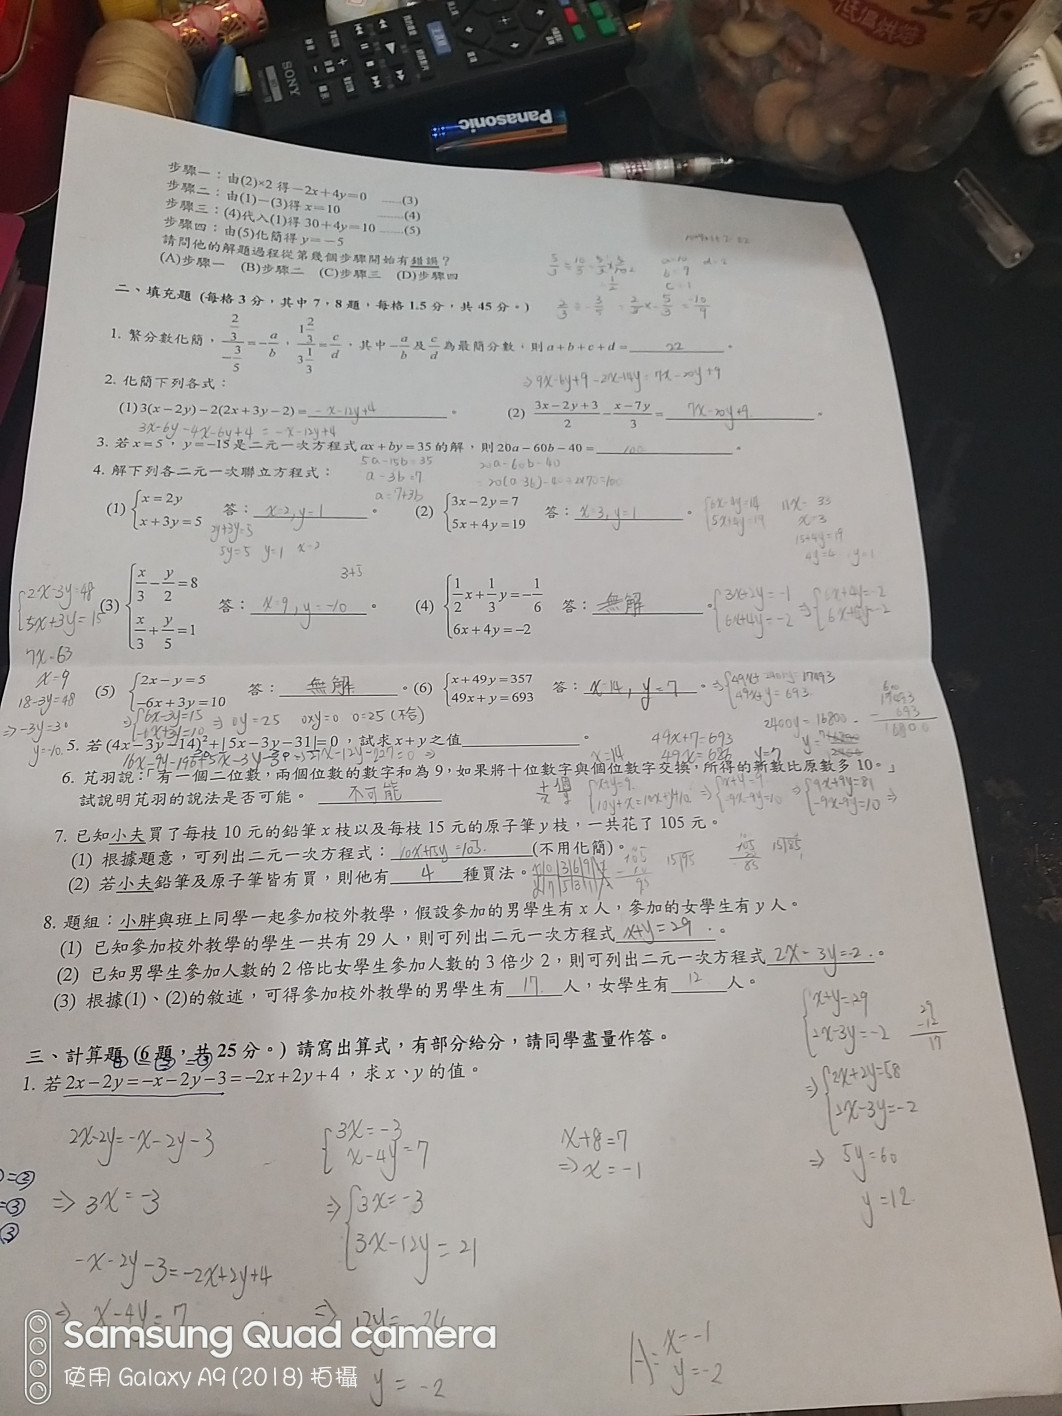 SONY
Panasonic
低溫烘焙
步驟一：由(2)×2 得 −2x+4y=0 ……(3)
步驟二：由(1)−(3)得 x=10 ……(4)
步驟三：(4)代入(1)得 30+4y=10 ……(5)
步驟四：由(5)化簡得 y=−5
請問他的解題過程從第幾個步驟開始有錯誤？
(A)步驟一 (B)步驟二 (C)步驟三 (D)步驟四
二、填充題 (每格 3 分，其中 7，8 題，每格 1.5 分，共 45 分。)
1. 繁分數化簡，(2/3)/(−3/5)=−a/b，(1 2/3)/(3 1/3)=c/d，其中−a/b及c/d為最簡分數，則 a+b+c+d= 22 。
2. 化簡下列各式：
⇒9x-6y+9-2x+14y=7x-20y+9
(1) 3(x−2y)−2(2x+3y−2)= -x-12y+4 。 (2) (3x−2y+3)/2−(x−7y)/3= 7x-20y+9 。
3x-6y-4x-6y+4 = -x-12y+4
3. 若 x=5，y=−15 是二元一次方程式 ax+by=35 的解，則 20a−60b−40= 100 。
5a-15b=35 20a-60b-40
a-3b=7
a=7+3b
4. 解下列各二元一次聯立方程式：
(1) {x=2y x+3y=5 答： x=2, y=1 。 (2) {3x−2y=7 5x+4y=19 答： x=3, y=1 。
2y+3y=5
5y=5 y=1 x=2
{6x-4y=14 5x+4y=19
11x=33
x=3
15+4y=19
4y=4 y=1
(3) {x/3−y/2=8 x/3+y/5=1 答： x=9, y=-10 。 (4) {1/2x+1/3y=−1/6 6x+4y=−2 答： 無解 。
{2x-3y=48 5x+3y=15
7x=63
x=9
18-3y=48
⇒-3y=30
y=-10
{3x+2y=-1 6x+4y=-2 ⇒ {6x+4y=-2 6x+4y=-2
(5) {2x−y=5 −6x+3y=10 答： 無解 。 (6) {x+49y=357 49x+y=693 答： x=14, y=7 。
⇒{6x-3y=15 -6x+3y=10 ⇒ 0y=25 0xy=0 0=25 (不合)
⇒{49x+2401y=17493 49x+y=693
2400y=16800
17493
693
16800
49x+7=693
x=14 49x=686 y=7
5. 若(4x−3y−14)²+|5x−3y−31|=0，試求 x+y 之值 。
6. 芃羽說：「有一個二位數，兩個位數的數字和為 9，如果將十位數字與個位數字交換，所得的新數比原數多 10。」
試說明芃羽的說法是否可能。 不可能
7. 已知小夫買了每枝 10 元的鉛筆 x 枝以及每枝 15 元的原子筆 y 枝，一共花了 105 元。
(1) 根據題意，可列出二元一次方程式： 10x+15y=105 (不用化簡)。
(2) 若小夫鉛筆及原子筆皆有買，則他有 4 種買法。
8. 題組：小胖與班上同學一起參加校外教學，假設參加的男學生有 x 人，參加的女學生有 y 人。
(1) 已知參加校外教學的學生一共有 29 人，則可列出二元一次方程式 x+y=29 。
(2) 已知男學生參加人數的 2 倍比女學生參加人數的 3 倍少 2，則可列出二元一次方程式 2x-3y=-2 。
(3) 根據(1)、(2)的敘述，可得參加校外教學的男學生有 17 人，女學生有 12 人。
{x+y=29 2x-3y=-2
29
-12
17
⇒{2x+2y=58 2x-3y=-2
⇒ 5y=60
y=12
三、計算題 (6 題，共 25 分。) 請寫出算式，有部分給分，請同學盡量作答。
1. 若 2x−2y=−x−2y−3=−2x+2y+4，求 x、y 的值。
2x-2y=-x-2y-3
⇒3x=-3
-x-2y-3=-2x+2y+4
⇒ x-4y=7
{3x=-3 x-4y=7
⇒{3x=-3 3x-12y=21
⇒ 12y=-24
y=-2
x+8=7
⇒x=-1
A: x=-1 y=-2
Samsung Quad camera
使用 Galaxy A9 (2018) 拍攝